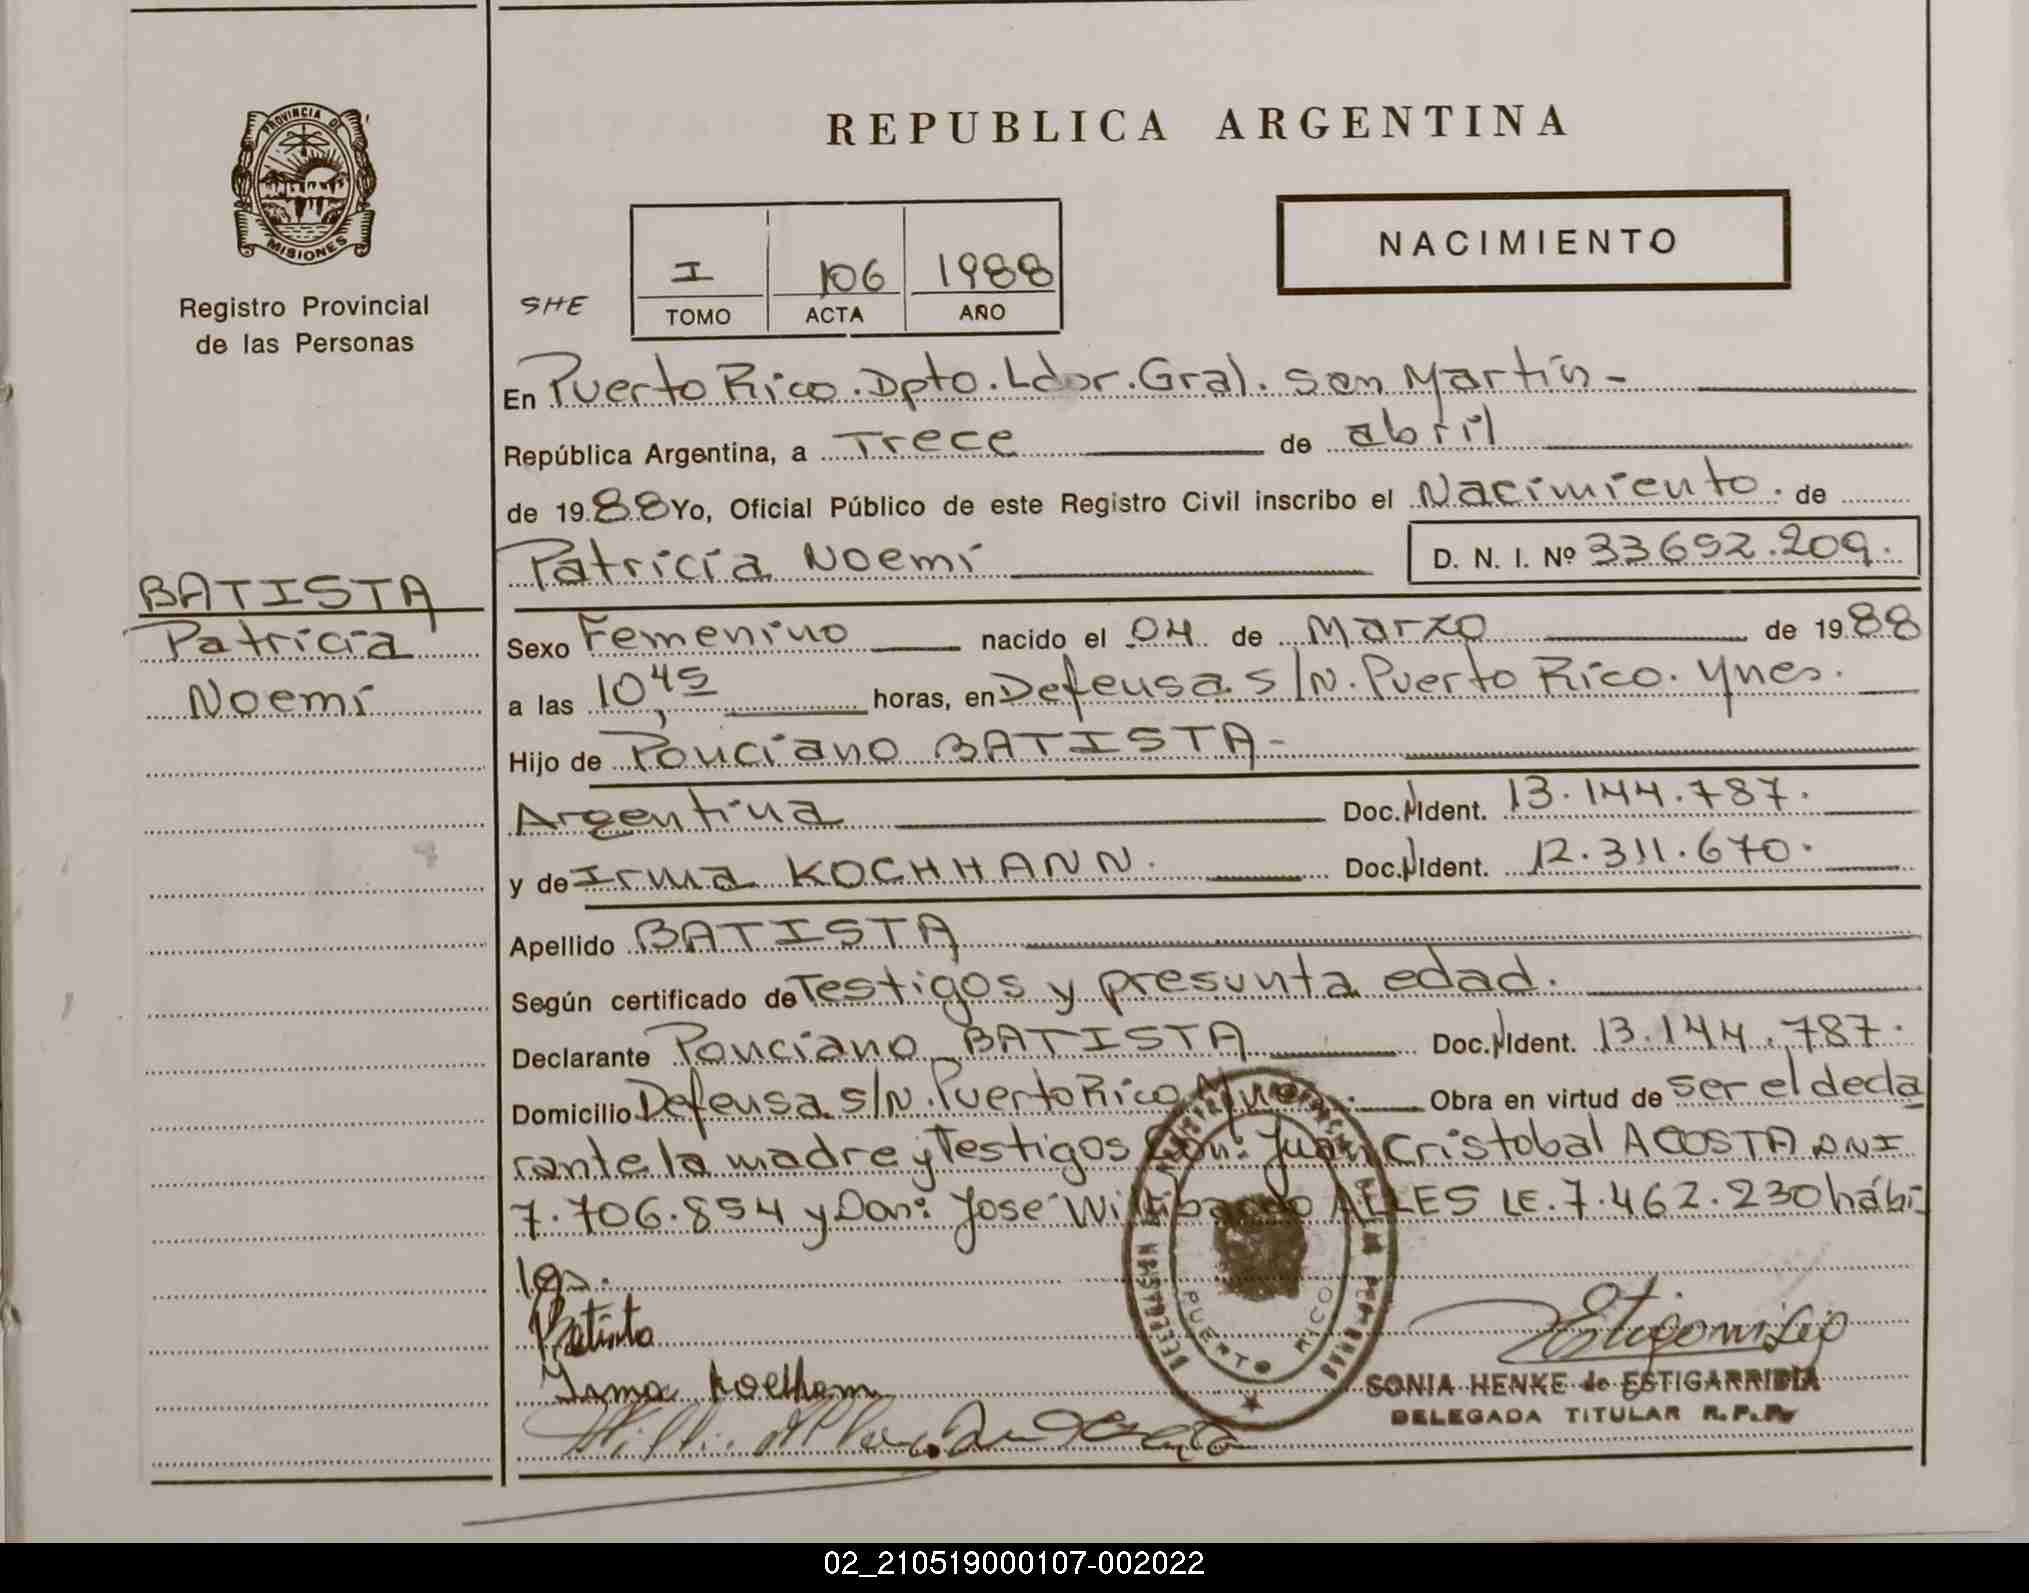 REPUBLICA ARGENTINA
PROVINCIA DE
MISIONES
Registro Provincial
de las Personas
NACIMIENTO
SHE
I 106 1988
TOMO ACTA AÑO
En Puerto Rico. Dpto. Ldor. Gral. San Martín -
República Argentina, a Trece de abril
de 1988 Yo, Oficial Público de este Registro Civil inscribo el Nacimiento. de
Patricia Noemí D. N. I. Nº 33692.209.
BATISTA
Patricia
Noemí
Sexo Femenino nacido el 04 de Marzo de 1988
a las 10,45 horas, en Defensa s/N. Puerto Rico. Mnes.
Hijo de Ponciano BATISTA -
Argentina Doc. Ident. 13.144.787.
y de Irma KOCHHANN. Doc. Ident. 12.311.670.
Apellido BATISTA
Según certificado de Testigos y presunta edad.
Declarante Ponciano BATISTA Doc. Ident. 13.144.787.
Domicilio Defensa s/N. Puerto Rico Mnes. Obra en virtud de ser el decla
rante la madre y Testigos Don: Juan Cristobal ACOSTA DNI
7.706.854 y Don: José LE. 7.462.230 hábi-
les.
Batista
Irma
PUERTO RICO
SONIA HENKE de ESTIGARRIBIA
DELEGADA TITULAR R.P.P.
02_210519000107-002022